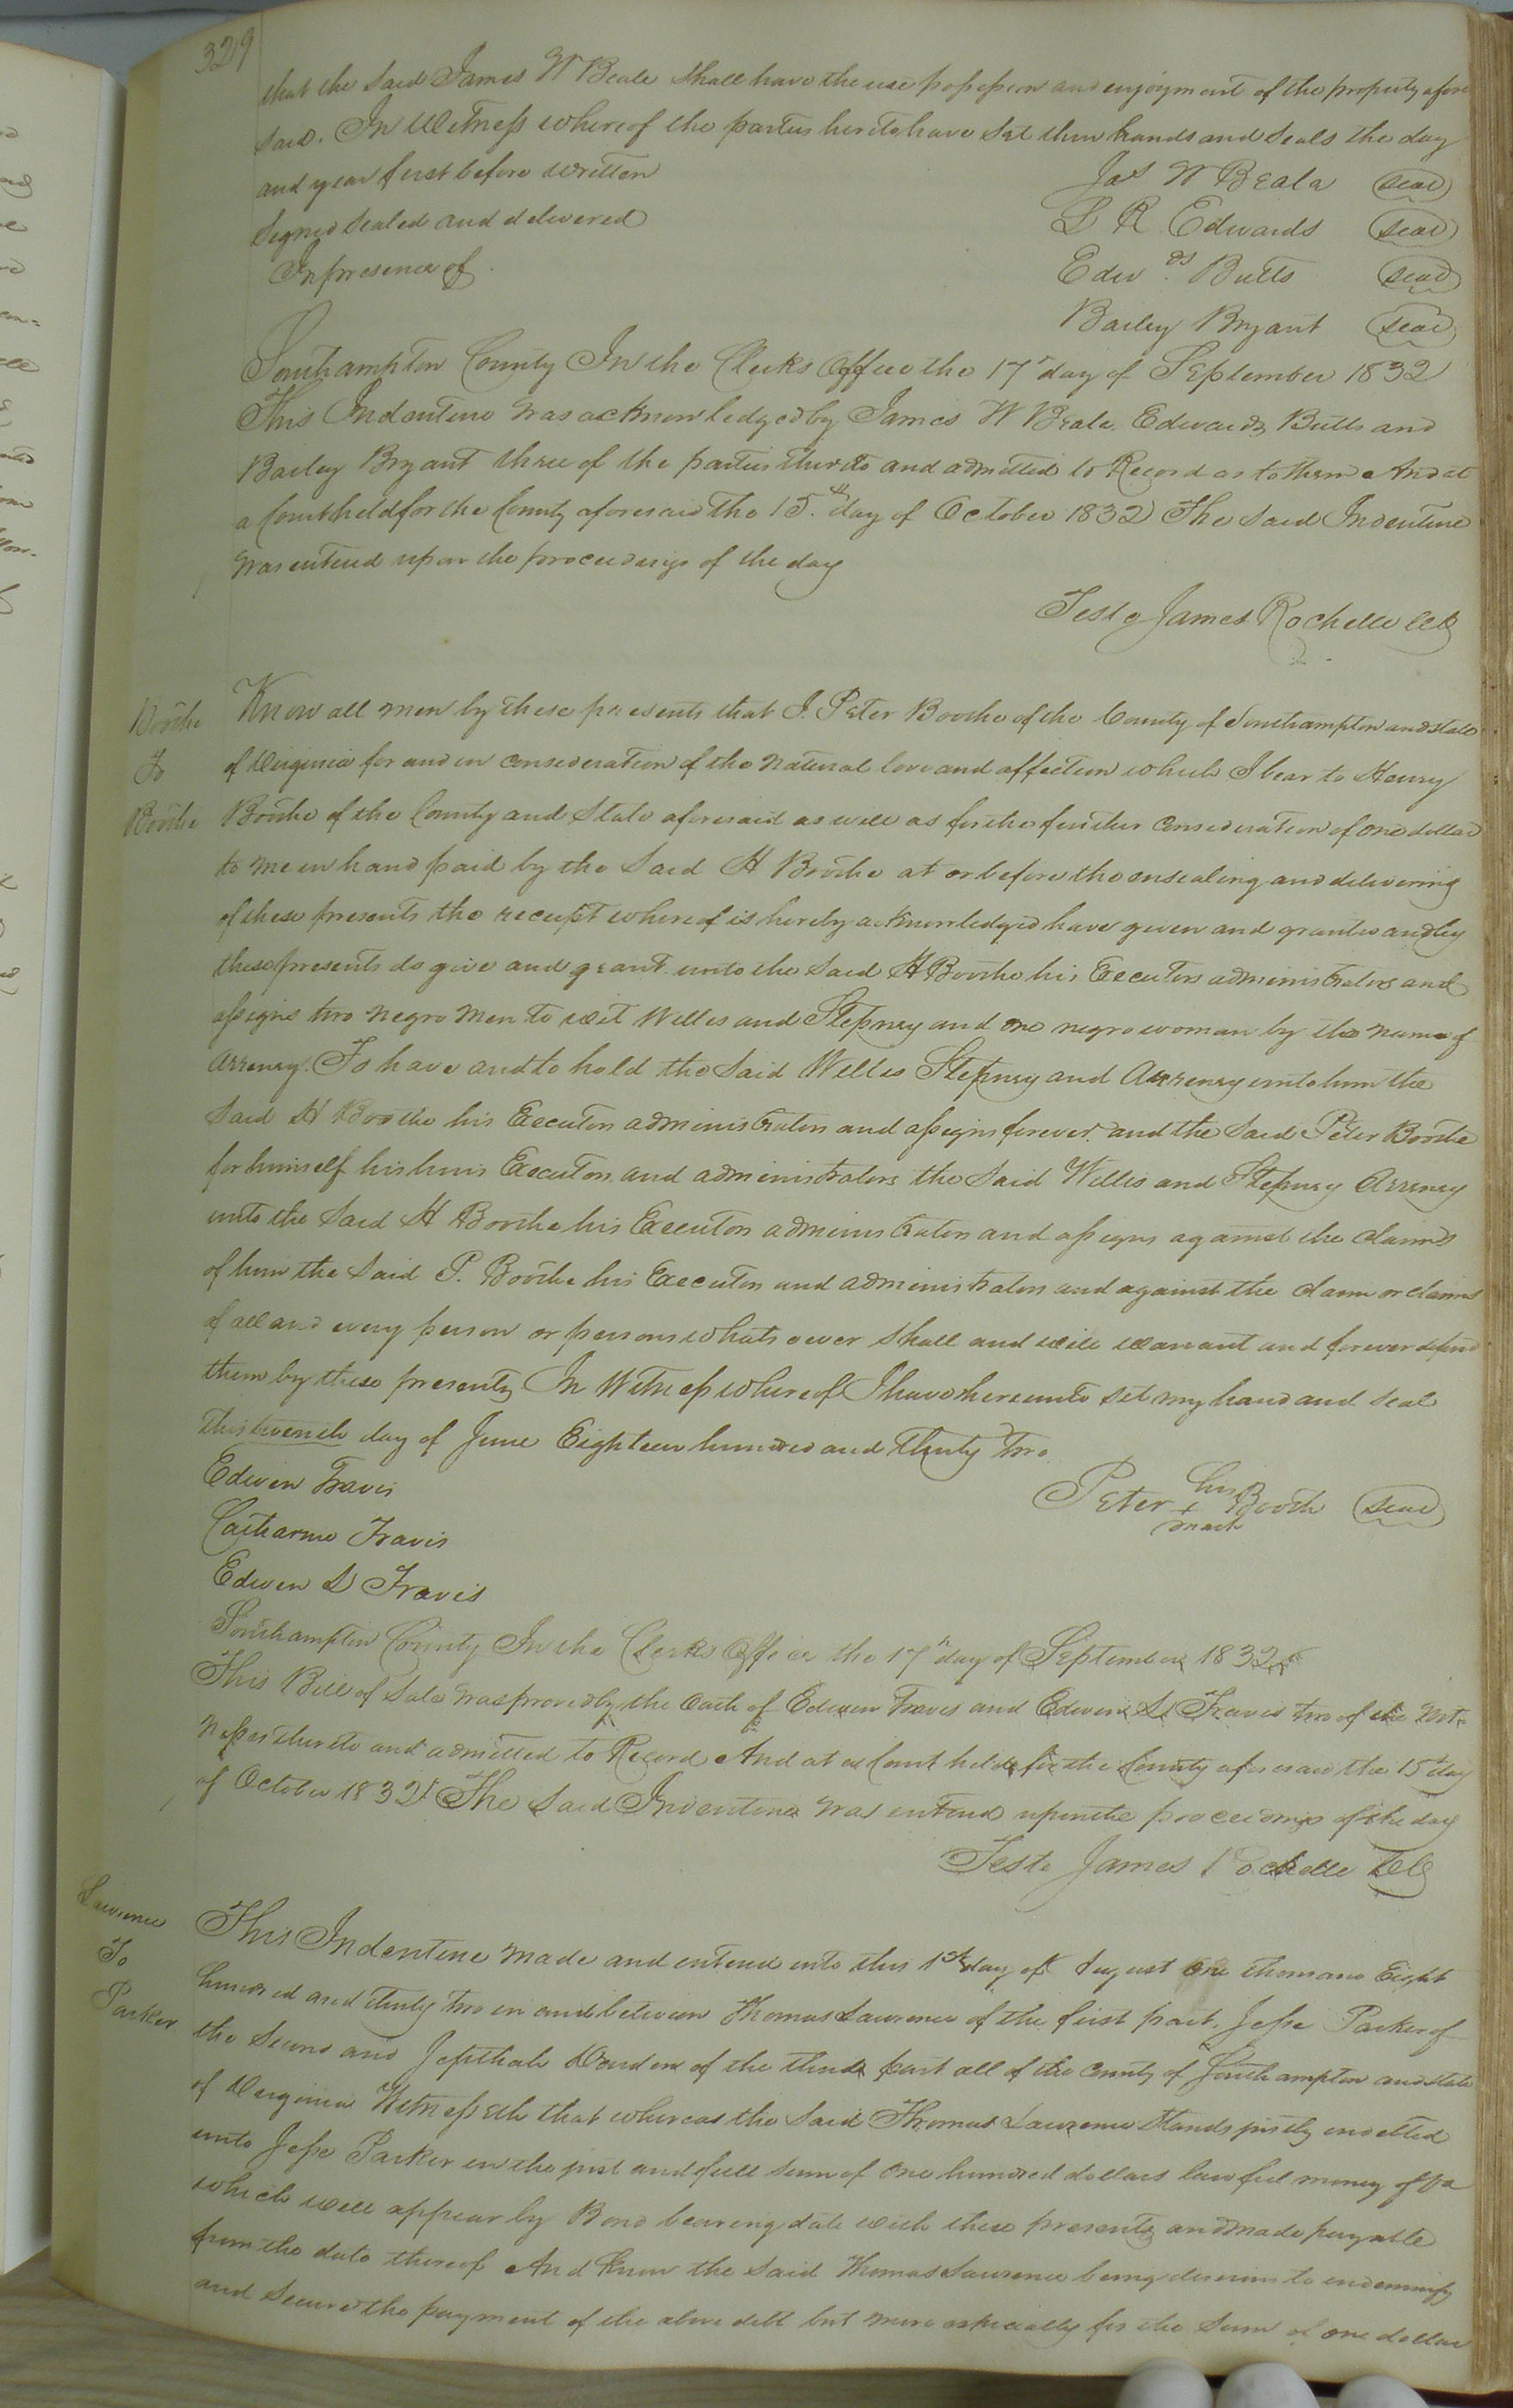 329
that the said James W Beale shall have the use possession and enjoyment of the property afore
said. In Witness whereof the parties hereto have set their hands and seals the day
and year first before written
Jas W Beale seal
Signed sealed and delivered
L R Edwards seal
In presence of
Edwds Butts seal
Bailey Bryant seal
Southampton County In the Clerks Office the 17th day of September 1832
This Indenture was acknowledged by James W Beale Edwards Butts and
Bailey Bryant three of the parties thereto and admitted to Record as to them And at
a Court held for the County aforesaid the 15th day of October 1832 The said Indenture
was entered upon the proceedings of the day
Teste James Rochelle CC
Boothe
To
Boothe
Know all men by these presents that I. Peter Boothe of the County of Southampton and state
of Virginia for and in consideration of the natural love and affection which I bear to Henry
Boothe of the County and State aforesaid as well as for the further consideration of one dollar
to me in hand paid by the said H Boothe at or before the ensealing and delivering
of these presents the receipt whereof is hereby acknowledged have given and granted and by
these presents do give and grant unto the said H Boothe his Executors administrators and
assigns two negro men to wit Willis and Stepney and one negro woman by the name of
Arreney. To have and to hold the said Willis Stepney and Arreney unto him the
said H Boothe his Executors administrators and assigns forever. and the said Peter Boothe
for himself his heirs Executors and administrators the said Willis and Stepney Arreney
unto the said H Boothe his Executors administrators and assigns against the claims
of him the said P. Boothe his Executors and administrators and against the claim or claims
of all and every person or persons whatsoever shall and will warrant and forever defend
them by these presents In Witness whereof I have hereunto set my hand and seal
this seventh day of June Eighteen hundred and Thirty Two
Edwin Travis
Peter his + mark Booth seal
Catharine Travis
Edwin S Travis
Southampton County In the Clerks Office the 17th day of September 1832
This Bill of Sale was proved by the oath of Edwin Travis and Edwin S Travis two of the Wit-
nesses thereto and admitted to Record And at a Court held for the County aforesaid the 15th day
of October 1832 The said Indenture was entered upon the proceedings of the day
Teste James Rochelle CC
Lawrence
To
Parker
This Indenture made and entered into this 1st day of August one thousand Eight
hundred and thirty two in and between Thomas Lawrence of the first part, Jesse Parker of
the second and Jepthah Darden of the third part all of the county of Southampton and state
of Virginia Witnesseth that whereas the said Thomas Lawrence stands justly indebted
unto Jesse Parker in the just and full sum of one hundred dollars lawful money of Va
which will appear by Bond bearing date with these presents and made payable
from the date thereof And know the said Thomas Lawrence being desirous to indemnify
and secure the payment of the above debt but more especially for the sum of one dollar